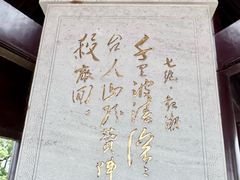 七绝·观潮
千里波涛滚滚
台人山纷赞阵
殺敵回。